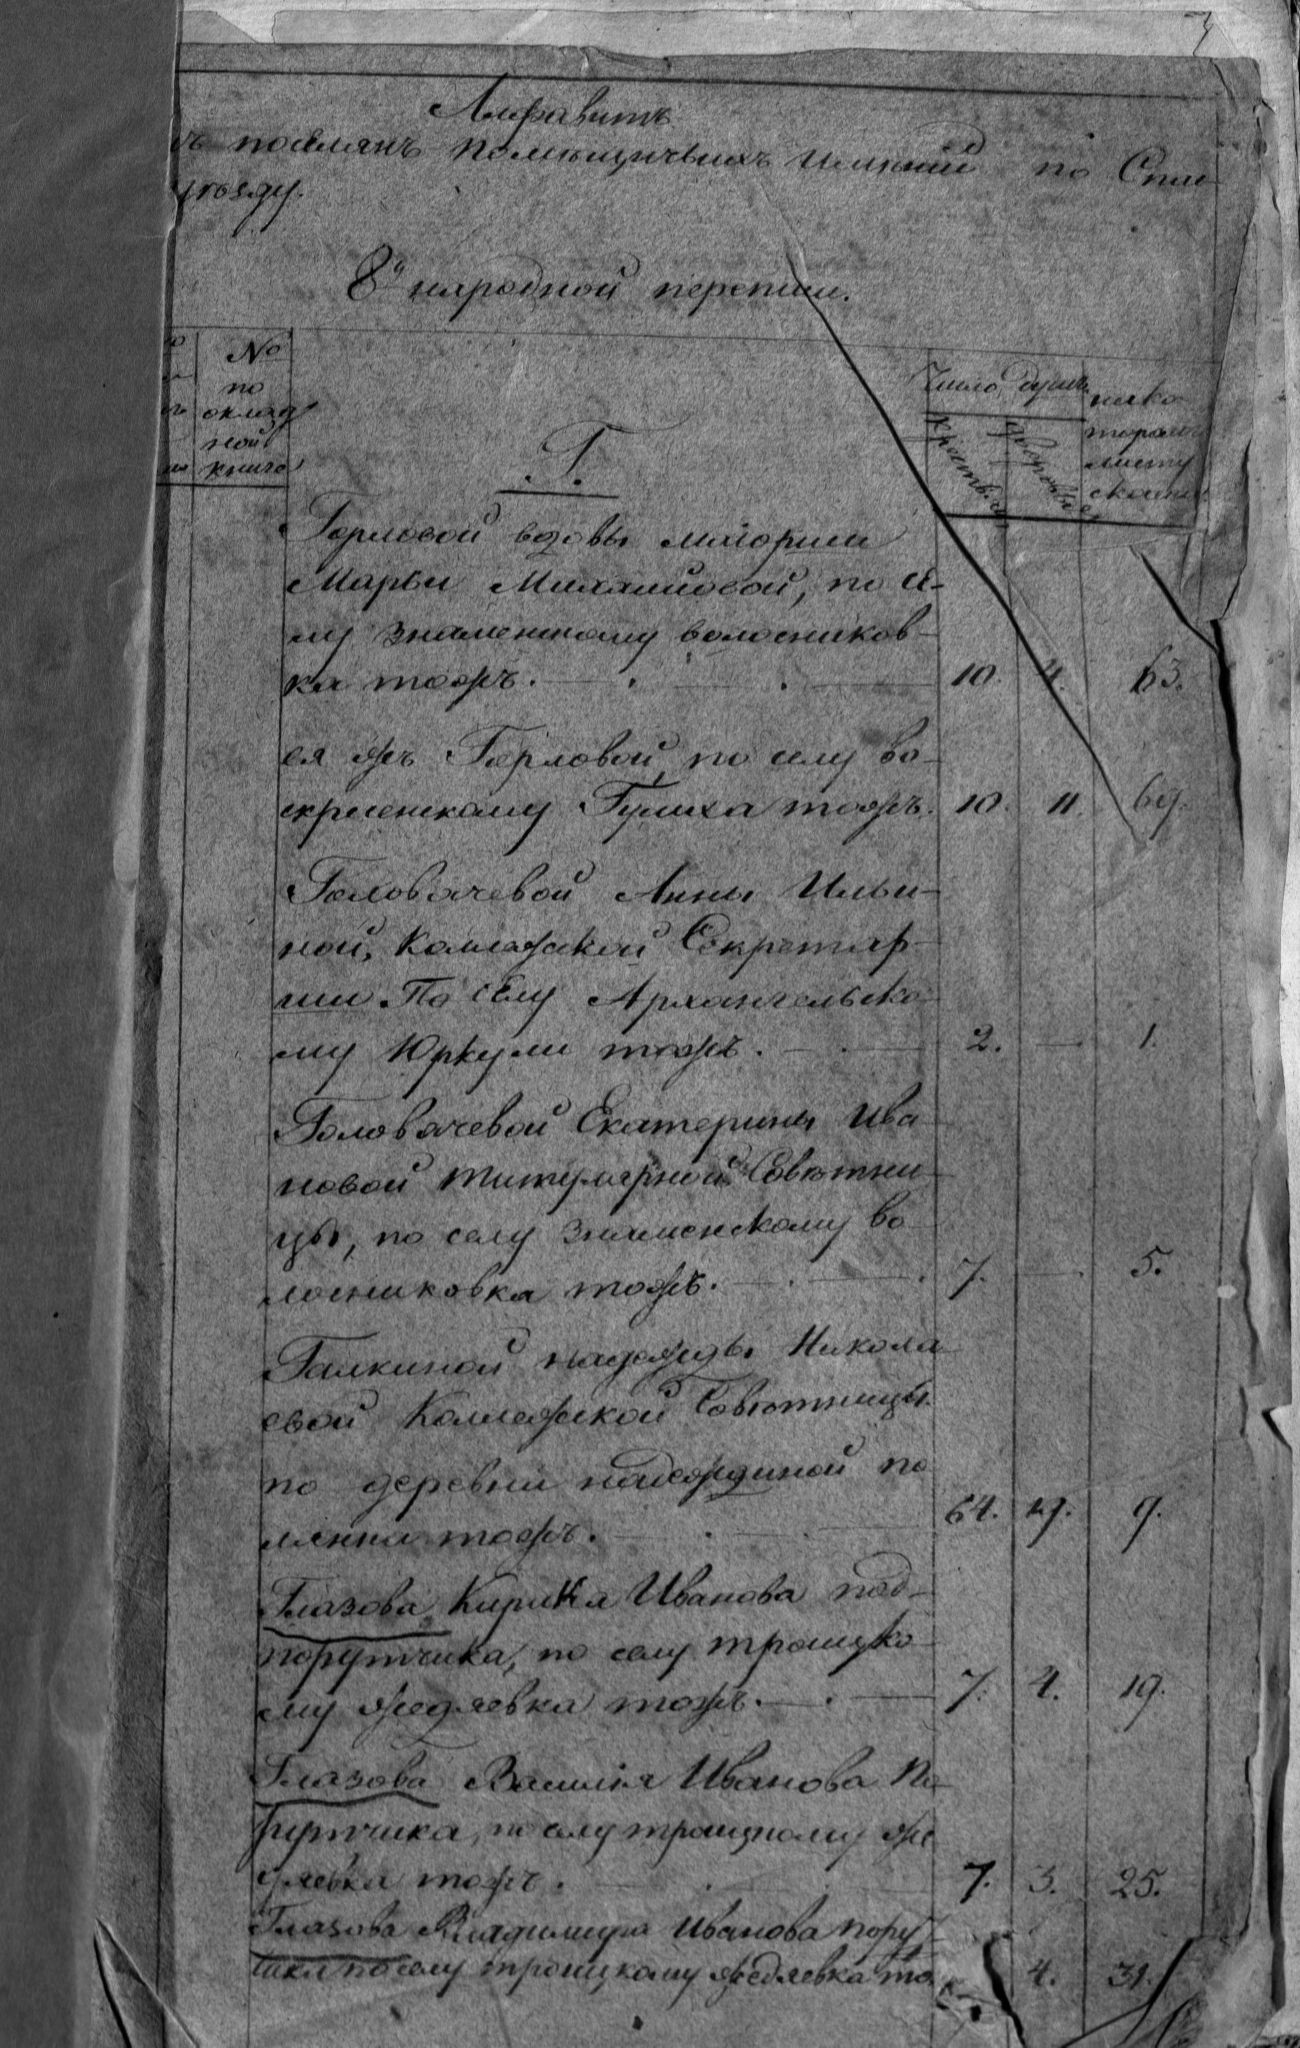 7
Алфавитъ
въ поселянъ помещичьихъ именій по Спас
уѣзду.
8й народной переписи.
№ по окладной книге
Число душъ
крестьян
дворовых
на которомъ листу сказки
.Г.
Горловой вдовы маіорши
Марьи Михайловой, по се-
лу знаменскому волосников-
ка тожъ.
10. 4. 63.
ея жъ Горловой, по селу во-
скресенскому Гулиха тожъ.
10. 11. 69.
Головачевой Анны Ильи-
ной, Коллежской Секретар-
ши По селу Архангельско-
му Юркули тожъ.
2. — 1.
Головачевой Екатерины Ива
новой титулярной Советни-
цы, по селу знаменскому во-
лосниковка тожъ.
7. — 5.
Галкиной надежды Никола
евой Коллежской Советницы
по деревни надеждиной по
лянки тожъ.
64. 19. 9.
Глазова Кирила Иванова под-
порутчика, по селу троицко-
му жедяевка тожъ.
7. 4. 19.
Глазова Василия Иванова По-
рутчика, по селу троицкому же
дяевка тожъ.
7. 3. 25.
Глазова Владимира Иванова пору
чика по селу троицкому жедяевка то.
4. 31.